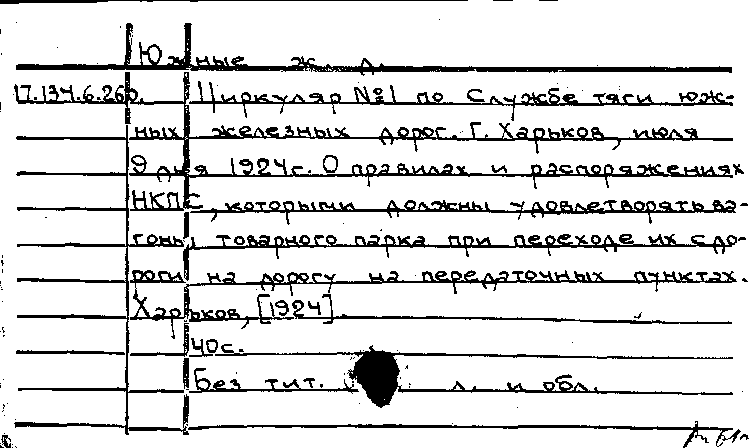 Южные ж. д.
17.134.6.260. Циркуляр №1 по Службе тяги юж-
ных железных дорог. Г. Харьков, июля
9 дня 1924г. О правилах и распоряжениях
НКПС, которыми должны удовлетворять ва-
гоны товарного парка при переходе их с до-
роги на дорогу на передаточных пунктах.
Харьков, [1924].
40с.
Без тит. л. и обл.